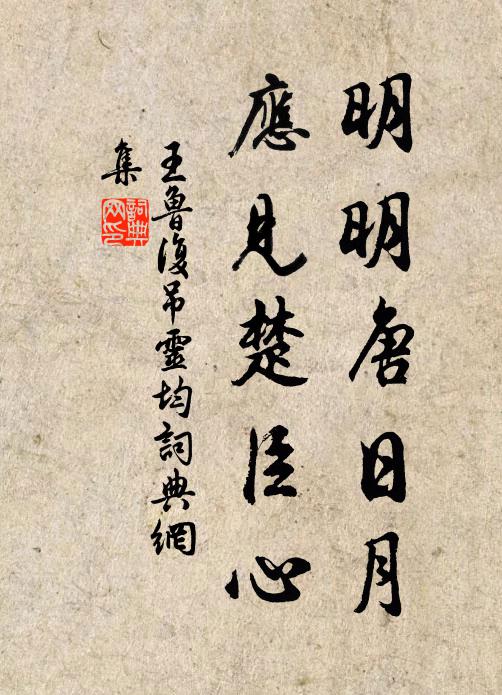 明明唐日月
應見楚臣心
王魯復吊靈均詞典網
集
詞典
网印